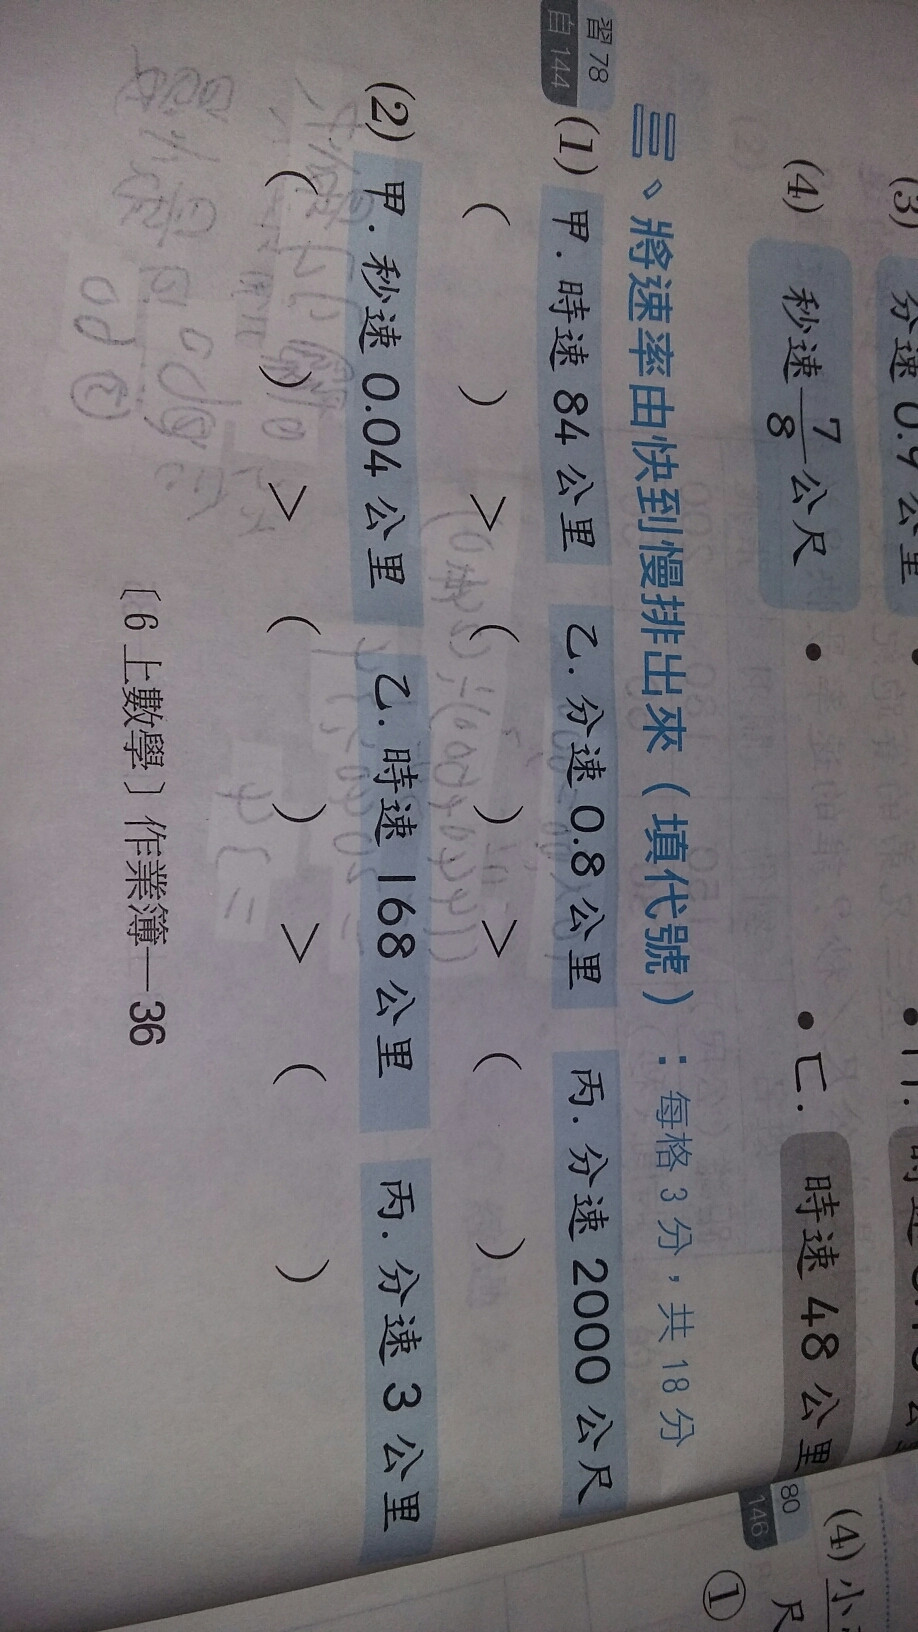 (3) 分速 0.9 公里
(4) 秒速 7/8 公尺 • • ㄈ. 時速 48 公里
三、將速率由快到慢排出來（填代號）：每格 3 分，共 18 分
習 78
自 144
(1) 甲. 時速 84 公里 乙. 分速 0.8 公里 丙. 分速 2000 公尺
( ) > ( ) > ( )
(2) 甲. 秒速 0.04 公里 乙. 時速 168 公里 丙. 分速 3 公里
( ) > ( ) > ( )
〔6 上數學〕作業簿—36
80
146
(4) 小
尺
①